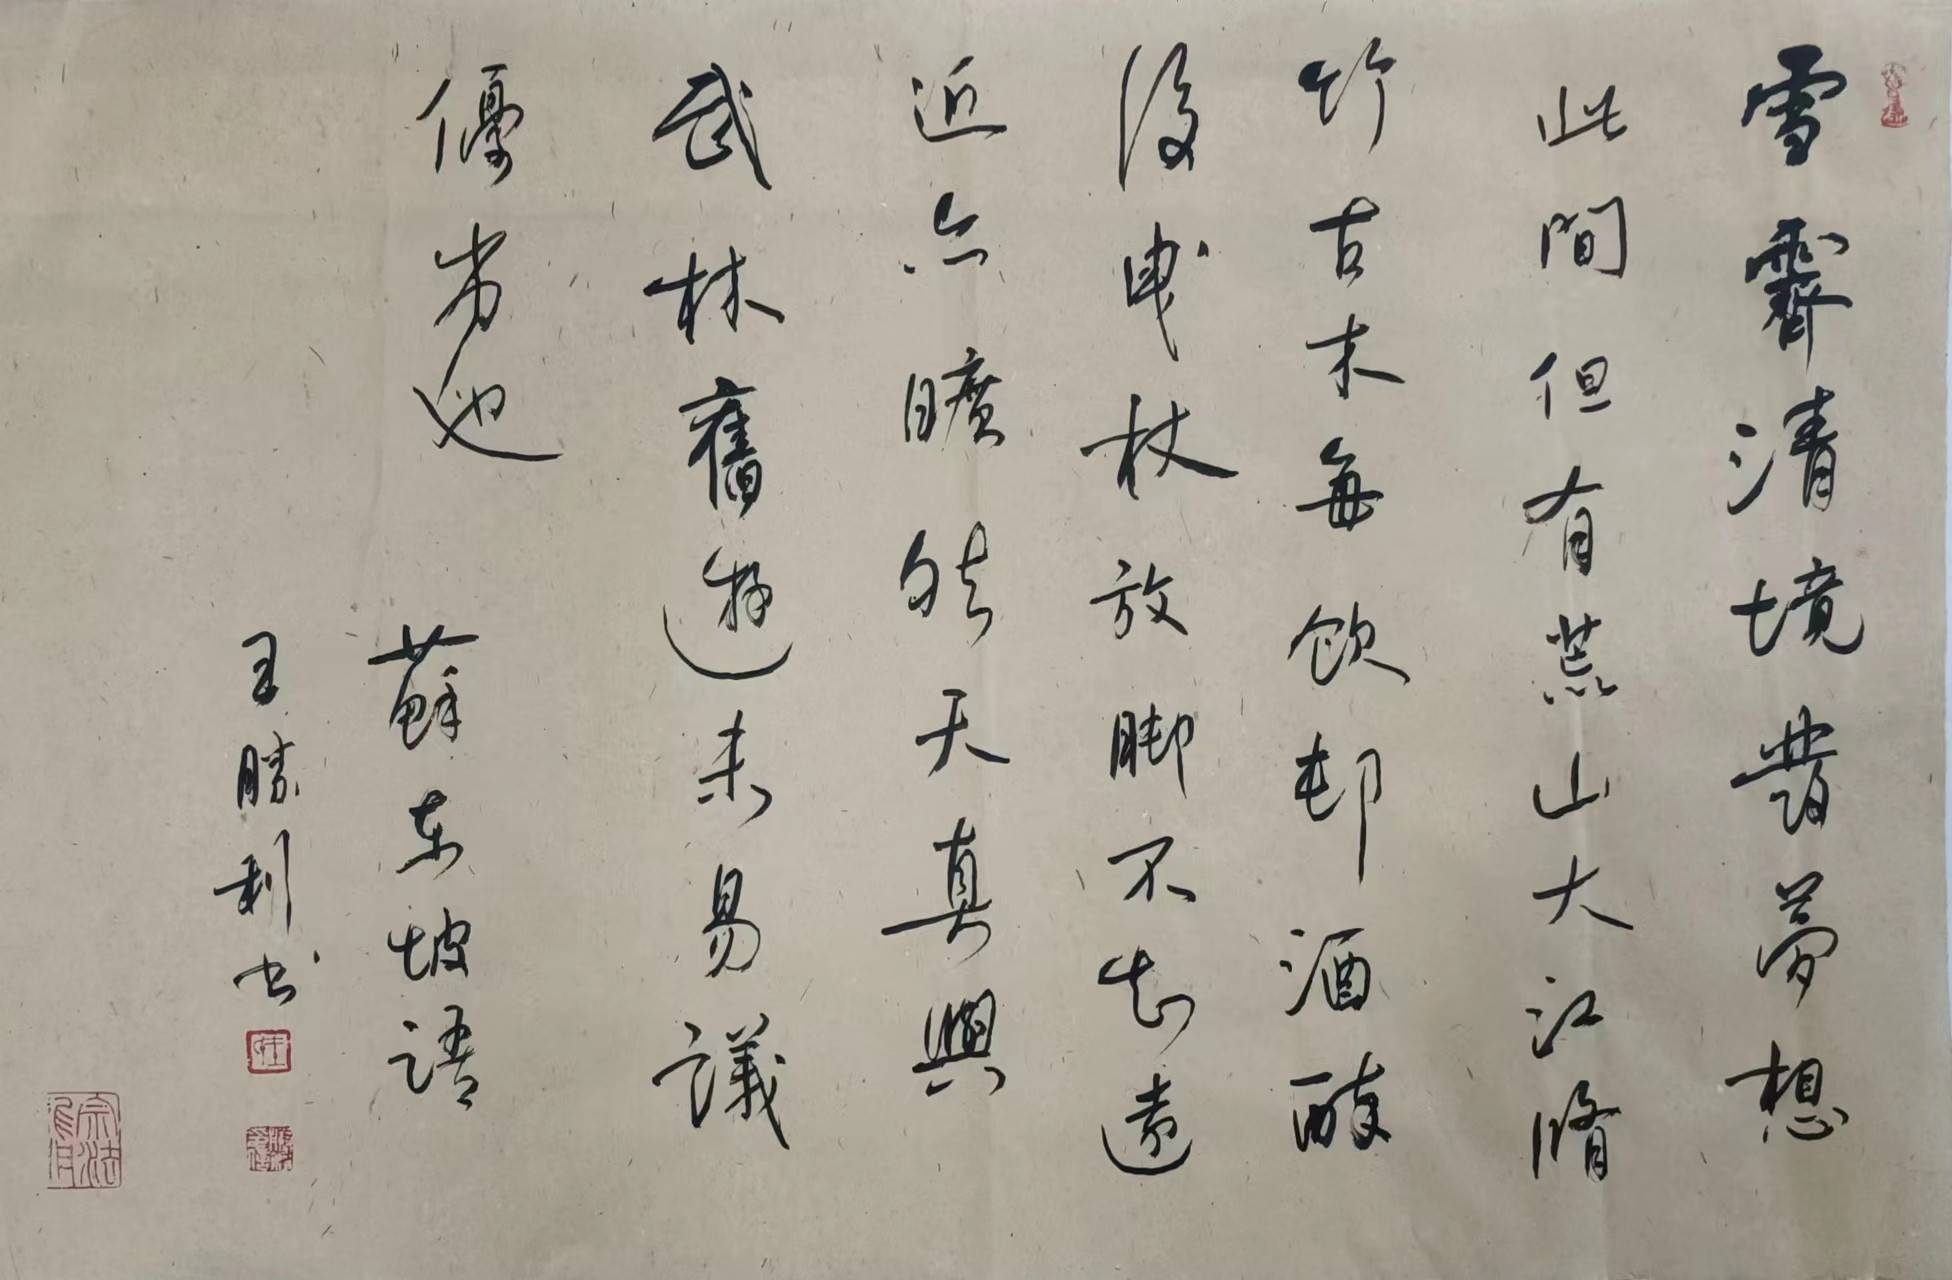 雪霽清境發夢想
此間但有荒山大江脩
竹古木每飲邨酒醉
後曳杖放脚不知遠
近亦曠然天真與
武林舊遊未易議
優劣也
蘇東坡語
王勝利书